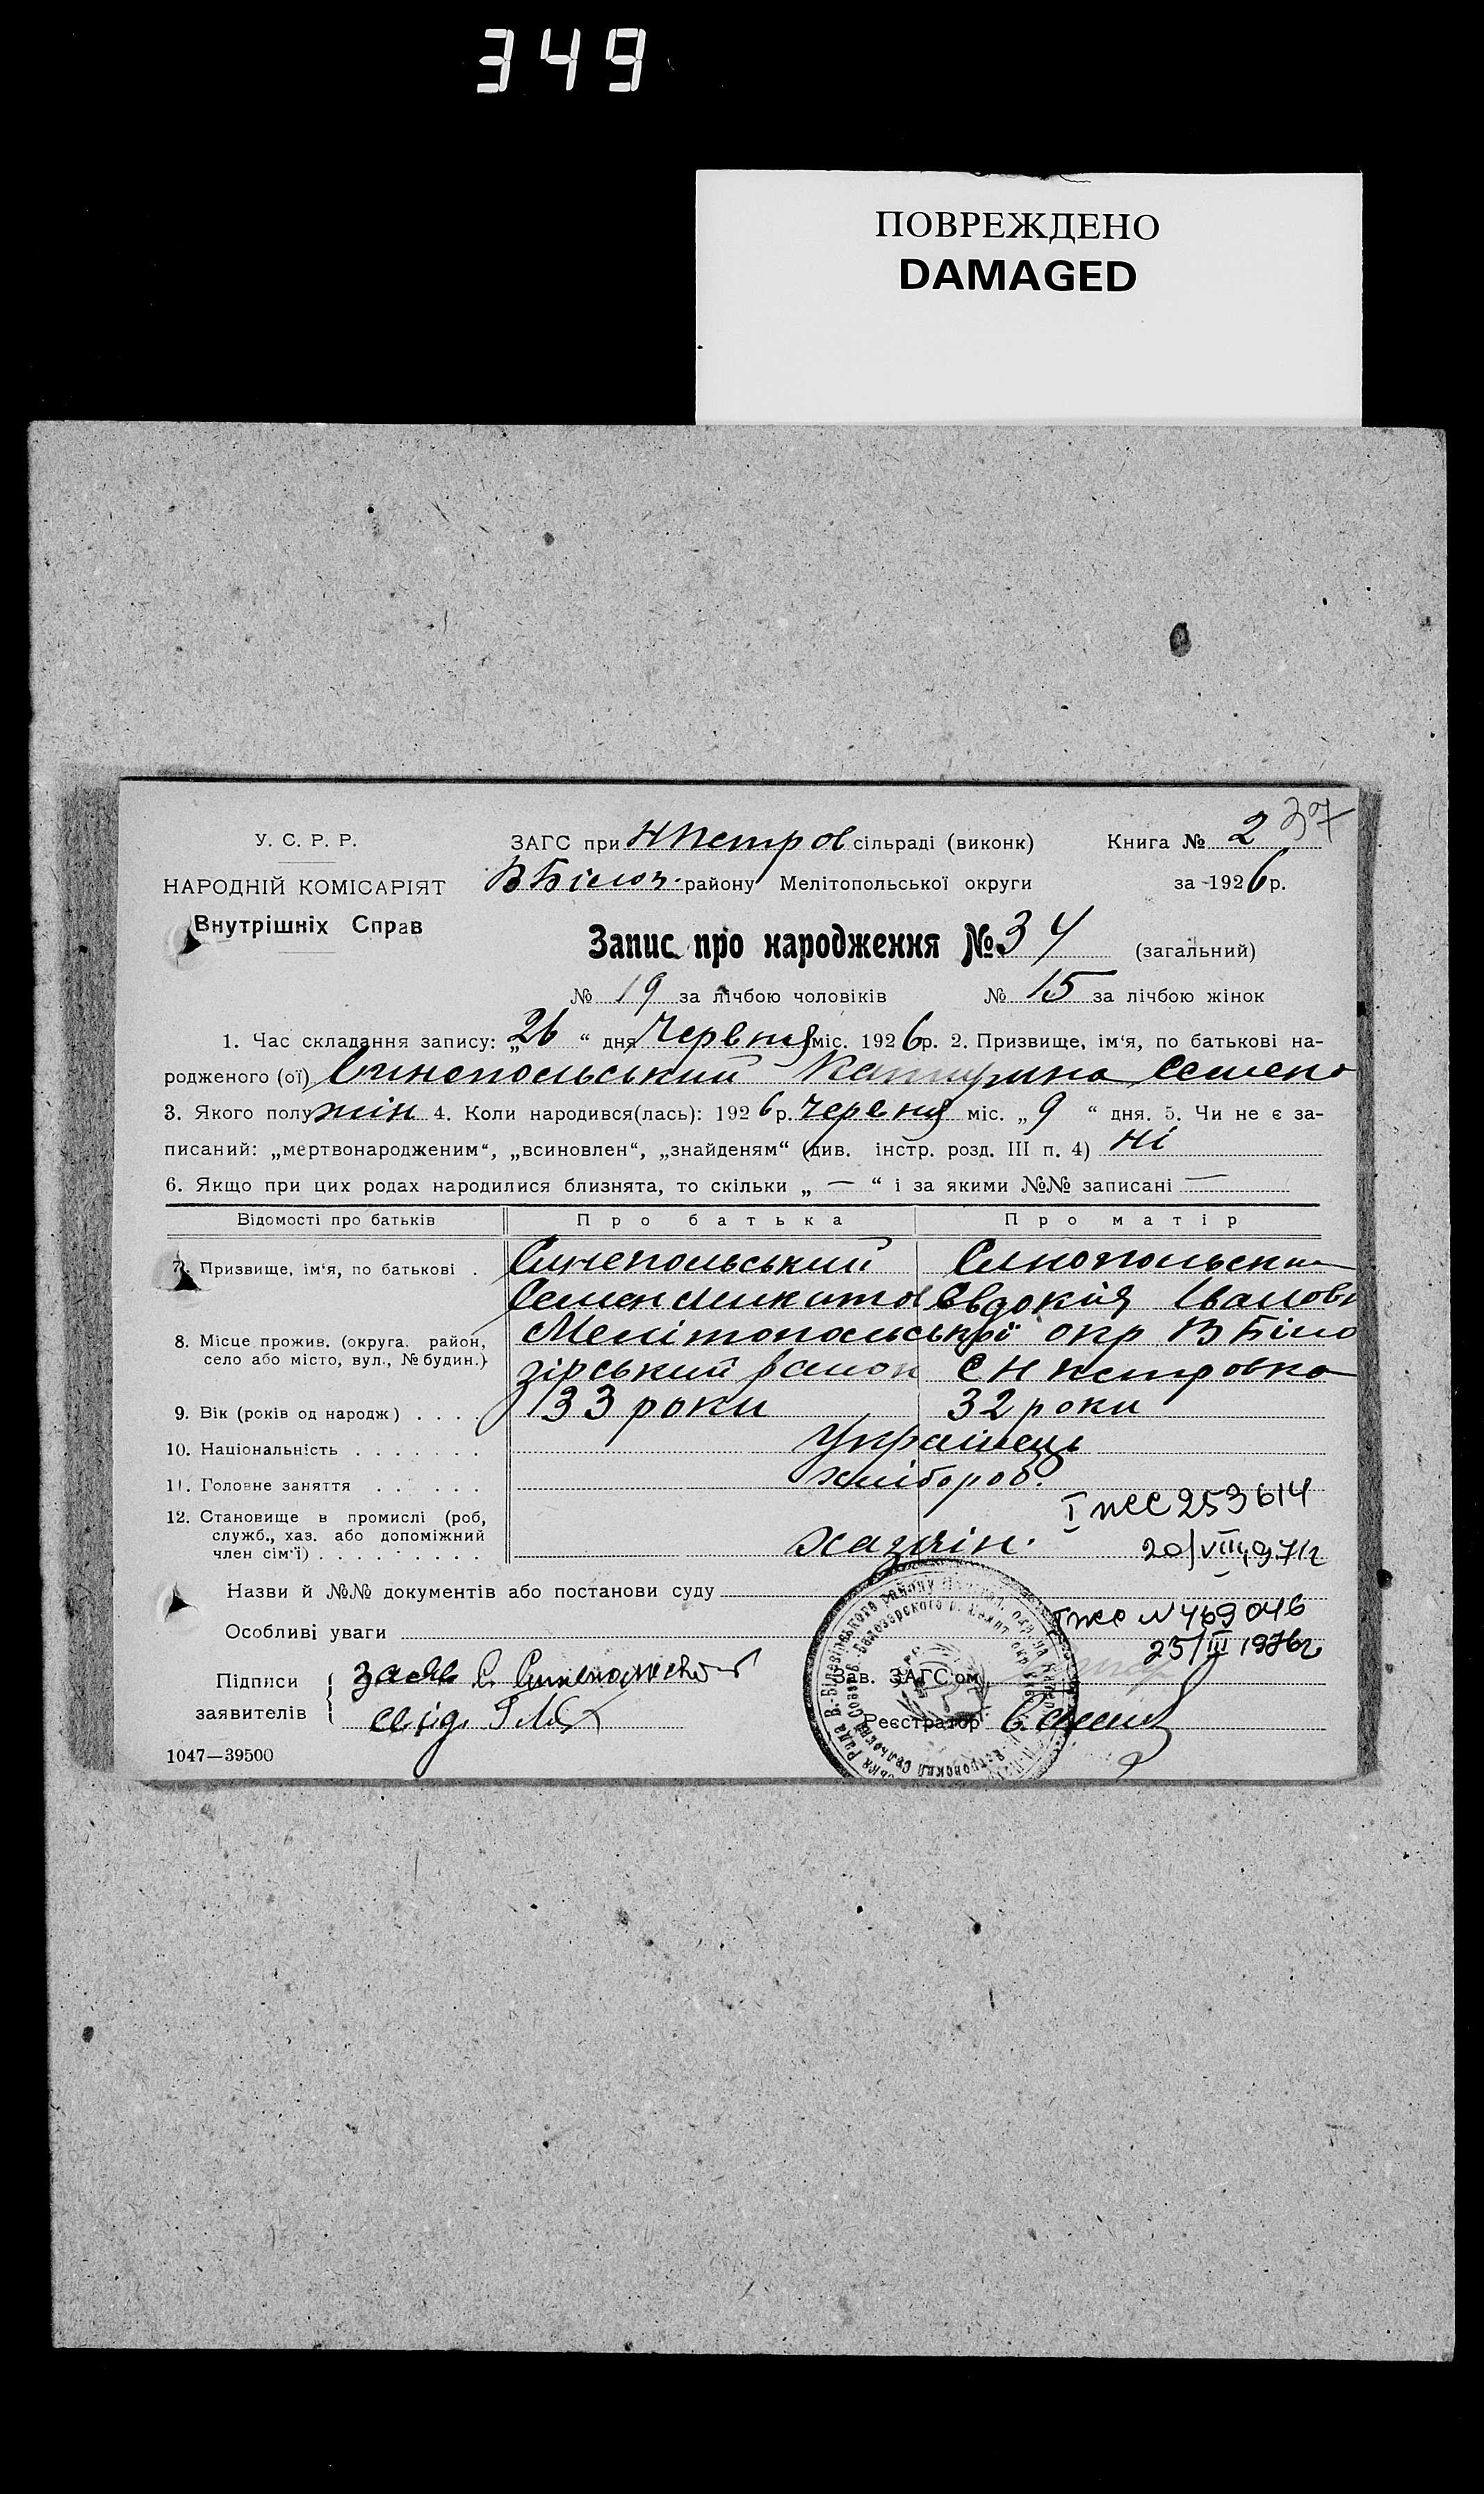 349
ПОВРЕЖДЕНО
DAMAGED
37
У. С. Р. Р.
ЗАГС при Н Петров сільраді (виконк)
Книга № 2
НАРОДНІЙ КОМІСАРІЯТ
В Білоз. району Мелітопольської округи
за 1926 р.
Внутрішніх Справ
Запис про народження № 34 (загальний)
№ 19 за лічбою чоловіків № 15 за лічбою жінок
1. Час складання запису: „26“ дня Червня міс. 1926 р. 2. Призвище, ім‘я, по батькові на-
родженого (ої) Синопольський Катирина Семено
3. Якого полу жін 4. Коли народився(лась): 1926 р. Червня міс. „9“ дня. 5. Чи не є за-
писаний: „мертвонародженим“, „всиновлен“, „знайденям“ (див. інстр. розд. III п. 4) ні
6. Якщо при цих родах народилися близнята, то скільки „ — “ і за якими №№ записані —
Відомості про батьків Про батька Про матір
7. Призвище, ім‘я, по батькові . Синепольський Синопольски
Семен Микитов Євдокія Івановн
8. Місце прожив. (округа. район, село або місто, вул., № будин.) Мелітопольської окр В Біло
зірський район С Н Петровка
9. Вік (років од народж) . . . . 33 роки 32 роки
10. Національність . . . . . . . Українець
11. Головне заняття . . . . . . хлібороб.
12. Становище в промислі (роб, служб., хаз. або допоміжний член сім‘ї) . . . . . . . . . хазяін.
І ЖС 253614
20/VIII 1971г
Назви й №№ документів або постанови суду
І жс № 469046
Особливі уваги
23/III 1976г
Підписи заявителів
заяв С.
свід.
Зав. ЗАГС‘ом
Реєстратор
1047—39500